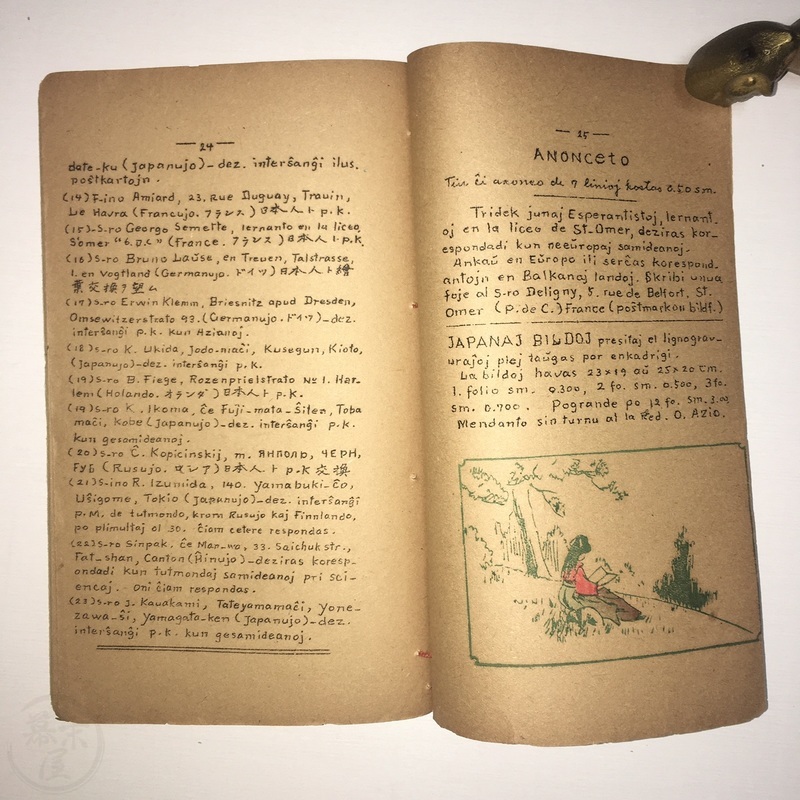 — 24 —
date-ku (Japanujo)-dez. interŝanĝi ilus.
poŝtkartojn.
(14) F-ino Amiard, 23. Rue Duguay, Trouin,
Le Havra (Francujo. フランス) 日本人ト p.k.
(15)-S-ro Georgo Semette, lernanto en la liceo,
(France. フランス) 日本人ト p.k.
(16)S-ro Bruno Lause, en Treuen, Talstrasse,
1. en Vogtland (Germanujo. ドイツ) 日本人ト繪
葉交換ヲ望ム
(17)S-ro Erwin Klemm, Briesnitz apud Dresden,
Omsewitzerstrato 93. (Germanujo. ドイツ)-dez.
interŝanĝi p.k. kun Azianoj.
(18)S-ro K. Ukida, Jodo-maĉi, Kusegun, Kioto,
(Japanujo)-dez. interŝanĝi p.k.
(19)S-ro B. Fiege, Rozenprielstrato No 1. Har-
lem (Holando. オランダ) 日本人ト p.k.
(19)S-ro K. Ikoma, ĉe Fuji-mata-Ŝiten, Toba
maĉi, Kobe (Japanujo)-dez. interŝanĝi p.k.
kun gesamideanoj.
(20)S-ro Ĉ. Kopicinskij, m. ЯМПОЛЬ, ЧЕРН,
ГУБ (Rusujo. ロシア) 日本人ト p.k 交換
(21)S-ino R. Izumida, 140. Yamabuki-Ĉo,
Uŝigome, Tokio (Japanujo)-dez. interŝanĝi
p.M. de tutmondo, krom Rusujo kaj Finnlando,
po plimultaj ol 30. Ĉiam certe respondas.
(22)S-ro Sinpak. Ĉe Man-wo, 33. Saichuk str.,
Fat-shan, Canton (Ĥinujo)-deziras koresp-
ondadi kun tutmondaj samideanoj pri sci-
encoj. Oni ĉiam respondas.
(23)S-ro J. Kauakami, Tateyamamaĉi, Yone-
zawa-ŝi, Yamagata-ken (Japanujo)-dez.
interŝanĝi p.k. kun gesamideanoj.
— 25 —
ANONCETO
ĉi anonco de 7 linioj kostas 0.50 sm.
Tridek junaj Esperantistoj, lernant-
oj en la liceo de St-Omer, deziras kor-
espondadi kun neeŭropaj samideanoj.
Ankaŭ en Eŭropo ili serĉas korespond-
antojn en Balkanaj landoj. Skribi unua
foje al S-ro Deligny, 5. rue de Belfort, St.
Omer (P. de C.) France (poŝtmarkon bildf.)
JAPANAJ BILDOJ presitaj el lignograv-
uraĵoj plej taŭgas por enkadrigi.
La bildoj havas 23×19 aŭ 25×20 cm.
1. folio sm. 0.300, 2 fo. sm. 0.500, 3 fo.
sm. 0.700. Pogrande po 12 fo. sm.
Mendanto sin turnu al la Red. O. Azio.